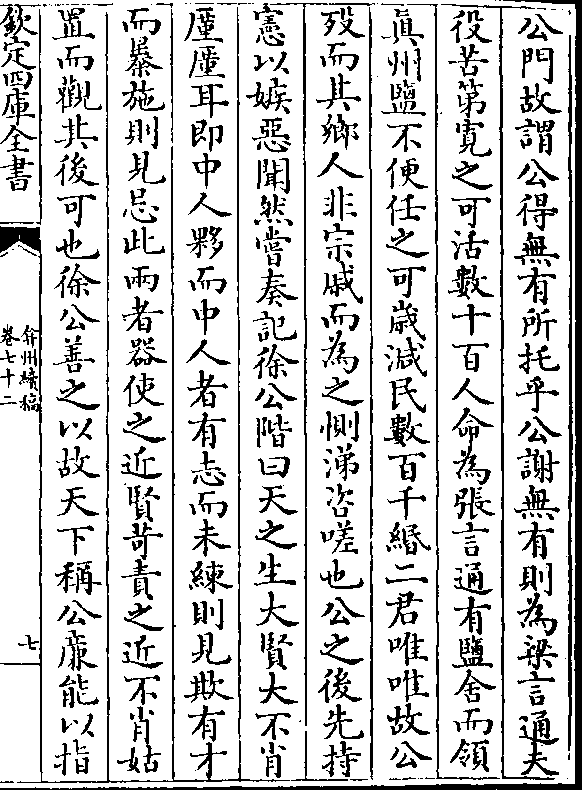 公門故謂公得無有所托乎公謝無有則為梁言通夫
役苦第寛之可活數十百人命為張言通有鹽舍而領
真州鹽不便任之可歳減民數百千緡二君唯唯故公
歿而其鄉人非宗戚而為之惻涕咨嗟也公之後先持
憲以嫉惡聞然嘗奏記徐公階曰天之生大賢大不肖
厪厪耳即中人夥而中人者有志而未練則見欺有才
而暴施則見忌此兩者器使之近賢苛責之近不肖姑
置而觀其後可也徐公善之以故天下稱公廉能以指
欽定四庫全書
弇州續稿
卷七十二
七